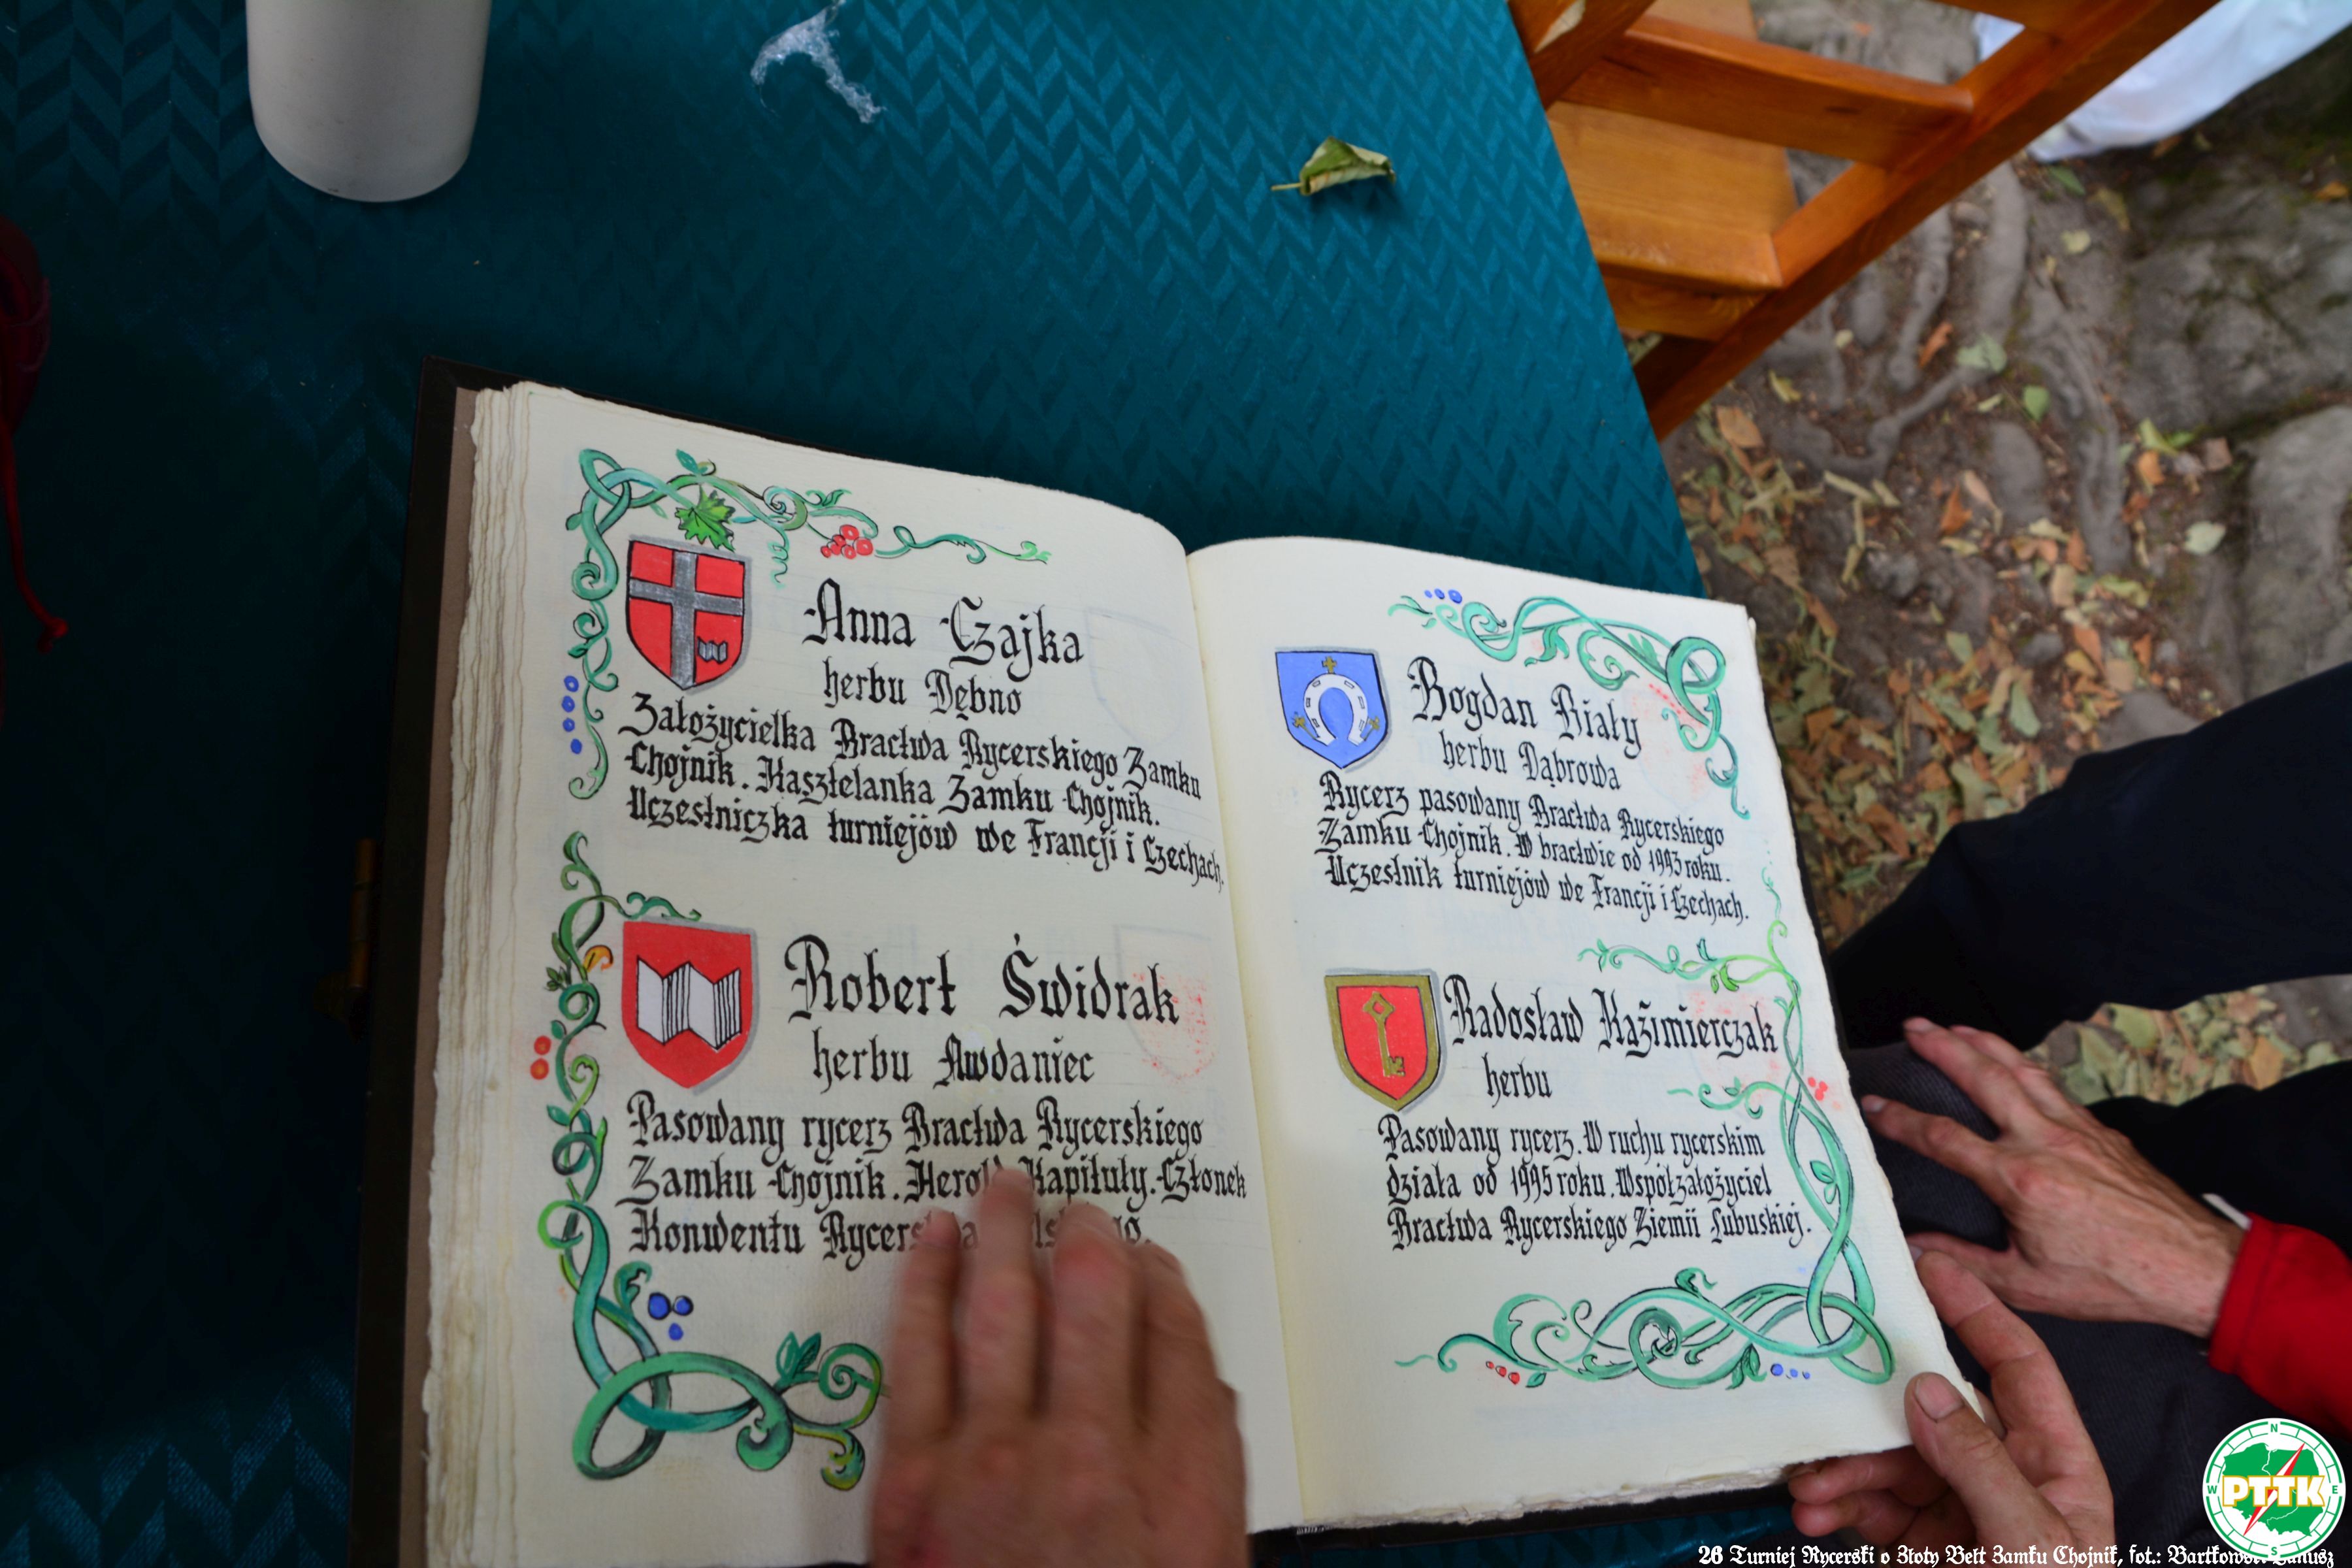 Anna Czajka
herbu Dębno
Założycielka Bractwa Rycerskiego Zamku
Chojnik. Kasztelanka Zamku Chojnik.
Uczestniczka turniejów we Francji i Czechach.
Robert Świdrak
herbu Awdaniec
Pasowany rycerz Bractwa Rycerskiego
Zamku Chojnik. Herold Kapituły. Członek
Konwentu
Bogdan Biały
herbu Dąbrowa
Rycerz pasowany Bractwa Rycerskiego
Zamku Chojnik. W bractwie od 1993 roku.
Uczestnik turniejów we Francji i Czechach.
Radosław Kaźimierczak
herbu
Pasowany rycerz. W ruchu rycerskim
działa od 1995 roku. Współzałożyciel
Bractwa Rycerskiego Ziemii Lubuskiej.
N
W PTTK E
S
26 Turniej Rycerski o Złoty Bełt Zamku Chojnik, fot.: